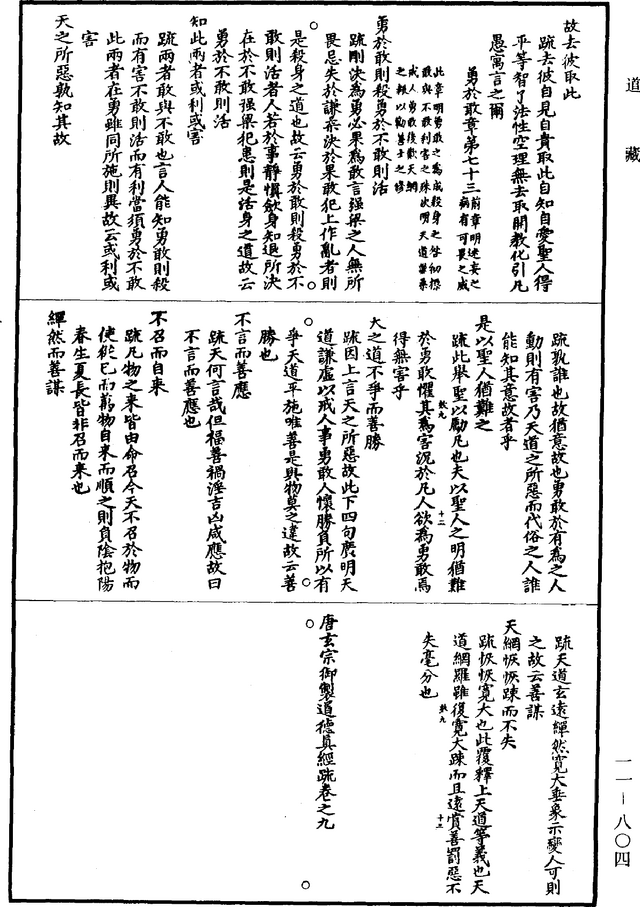 道藏
故去彼取此
疏去彼自見自貴取此自知自愛聖人得
平等智了法性空理無去取開教化引凡
愚寓言之爾
勇於敢章第七十三前章明迷妄之病有可畏之威
此章明勇敢之為成殺身之咎初標
敢與不敢利害之殊次明天道謙柔
戒人勇敢後歎天網
之報以勸善士之修
勇於敢則殺勇於不敢則活
疏剛決為勇必果為敢言強梁之人無所
畏忌失於謙柔決於果敢犯上作亂者則
是殺身之道也故云勇於敢則殺勇於不
敢則活者人若於事靜慎斂身知退所決
在於不敢強梁犯患則是活身之道故云
勇於不敢則活
知此兩者或利或害
疏兩者敢與不敢也言人能知勇敢則殺
而有害不敢則活而有利當須勇於不敢
此兩者在勇雖同所施則異故云或利或
害
天之所惡孰知其故
疏孰誰也故猶意故也勇敢於有為之人
動則有害乃天道之所惡而代俗之人誰
能知其意故者乎
是以聖人猶難之
疏此舉聖以勵凡也夫以聖人之明猶難
於勇敢懼其為害況於凡人欲為勇敢焉
得無害乎
天之道不爭而善勝
疏因上言天之所惡故此下四句廣明天
道謙虛以戒人事勇敢人懷勝負所以有
爭天道平施唯善是與物莫之違故云善
勝也
不言而善應
疏天何言哉但福善禍淫吉凶咸應故曰
不言而善應也
不召而自來
疏凡物之來皆由命召今天不召於物而
使從已而萬物自來而順之則負陰抱陽
春生夏長皆非召而來也
繟然而善謀
疏天道玄遠繟然寬大垂象示變人可則
之故云善謀
天網恢恢踈而不失
疏恢恢寬大也此覆釋上天道等義也天
道網羅雖復寬大踈而且遠賞善罰惡不
失毫分也
唐玄宗御製道德真經疏卷之九
一一—八〇四